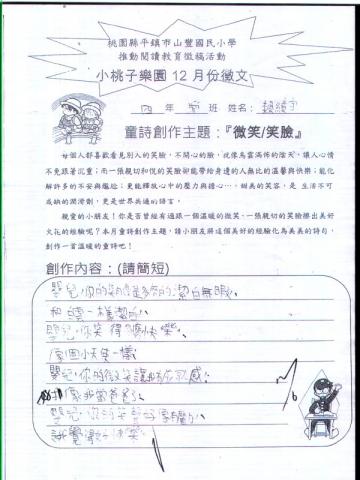 桃園縣平鎮市山豐國民小學
推動閱讀教育徵稿活動
小桃子樂園 12 月份徵文
四 年 班 姓名:
童詩創作主題:『微笑/笑臉』
每個人都喜歡看見別人的笑臉,不開心的臉,就像烏雲滿佈的陰天,讓人心情
不免跟著沉重;而一張親切和悅的笑臉卻能帶給身邊的人無比的溫馨與快樂;能化
解許多的不安與尷尬;更能釋放心中的壓力與擔心…,甜美的笑容,是 生活不可
或缺的潤滑劑,更是世界共通的語言。
親愛的小朋友!你是否曾經有過跟一個溫暖的微笑、一張親切的笑臉擦出美好
火花的經驗呢?本月童詩創作主題,請小朋友將這個美好的經驗化為美美的詩句,
創作一首溫暖的童詩吧!
創作內容:(請簡短)
嬰兒,你的笑是多麼的潔白無暇,
和白雲一樣潔白,
嬰兒,你笑得愉快樂,
像個小天使一樣,
嬰兒,你的微笑讓我有成就感,
像我當爸爸了,
嬰兒,你的笑
讓我覺得好快樂。